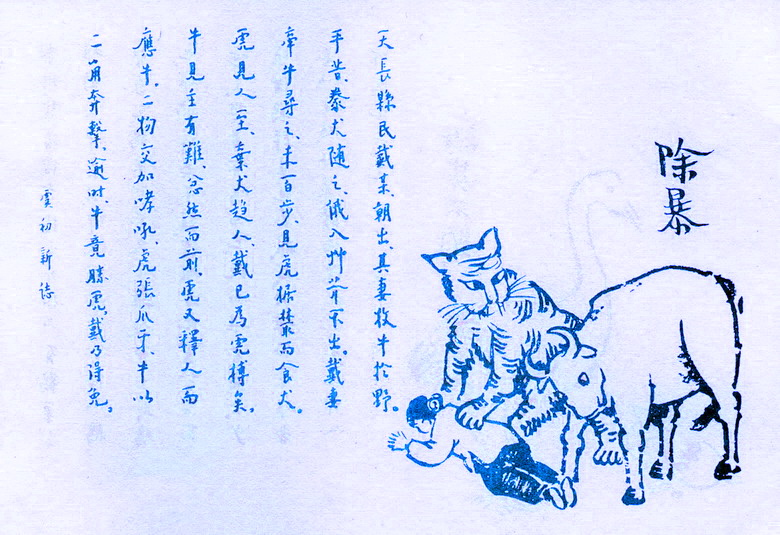 除暴
天長縣民戴某、朝出、其妻牧牛於野。
平昔豢犬隨之、俄入艸莽不出。戴妻
牽牛尋之、未百步、見虎據叢而食犬。
虎見人至、棄犬趨人、戴已為虎搏矣。
牛見主有難、忿然而前、虎又釋人而
應牛。二物交加哮吼、虎張爪牙、牛以
二角奔擊、逾时、牛竟勝虎、戴乃得免。
虞初新誌